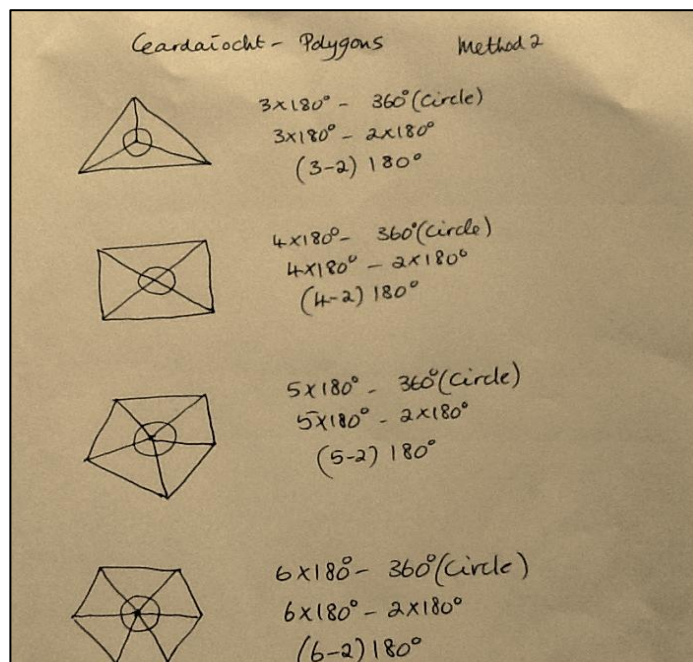 Ceardaíocht - Polygons Method 2
3×180° - 360° (Circle)
3×180° - 2×180°
(3-2) 180°
4×180° - 360° (Circle)
4×180° - 2×180°
(4-2) 180°
5×180° - 360° (Circle)
5×180° - 2×180°
(5-2) 180°
6×180° - 360° (Circle)
6×180° - 2×180°
(6-2) 180°